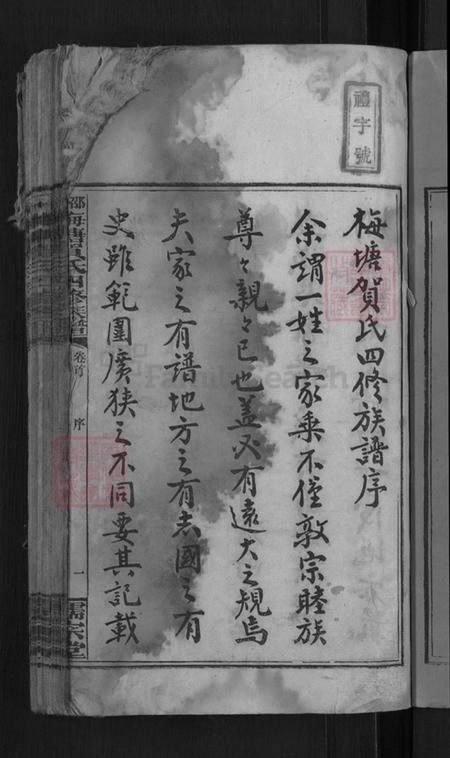 禮字號
梅塘賀氏四修族譜序
余謂一姓之家乘不僅敦宗睦族
尊々親々已也蓋必有遠大之規焉
夫家之有譜地方之有志國之有
史雖範圍廣狹之不同要其記載
梅塘賀氏四修族譜
卷首
序
一
儒宗堂
FamilySearch